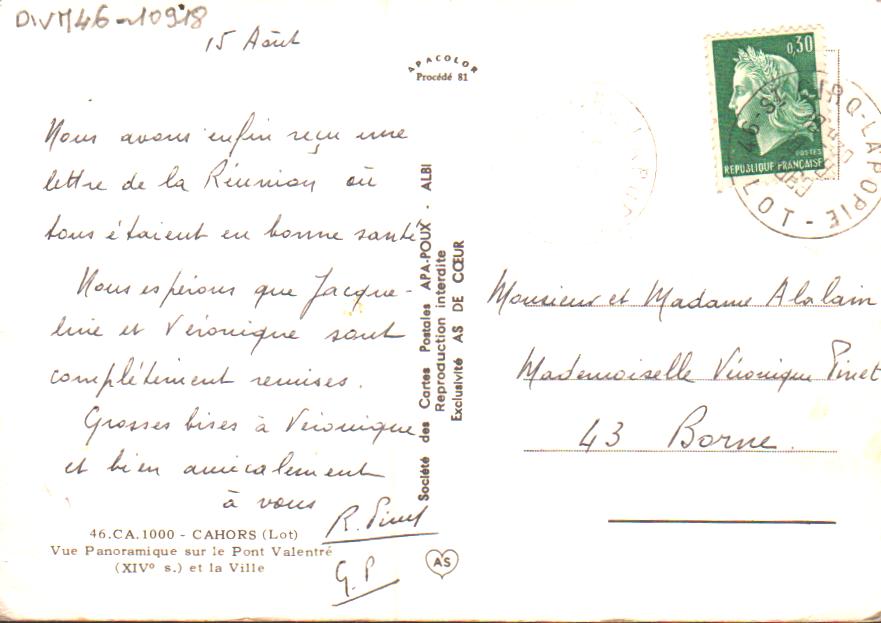 DIVM46-10918
15 Août
APACOLOR
Procédé 81
Nous avons enfin reçu une
lettre de la Réunion où
tous étaient en bonne santé
Nous espérons que Jacque-
line et Véronique sont
complétement remises.
Grosses bises à Véronique
et bien amicalement
à vous
R. Pinet
G.P
46.CA.1000 - CAHORS (Lot)
Vue Panoramique sur le Pont Valentré
(XIVº s.) et la Ville
Société des Cartes Postales APA-POUX - ALBI
Reproduction interdite
Exclusivité AS DE CŒUR
AS
0,30
POSTES
REPUBLIQUE FRANÇAISE
46-ST CIRQ-LAPOPIE
LOT
Monsieur et Madame Alalain
Mademoiselle Véronique Pinet
43 Borne.